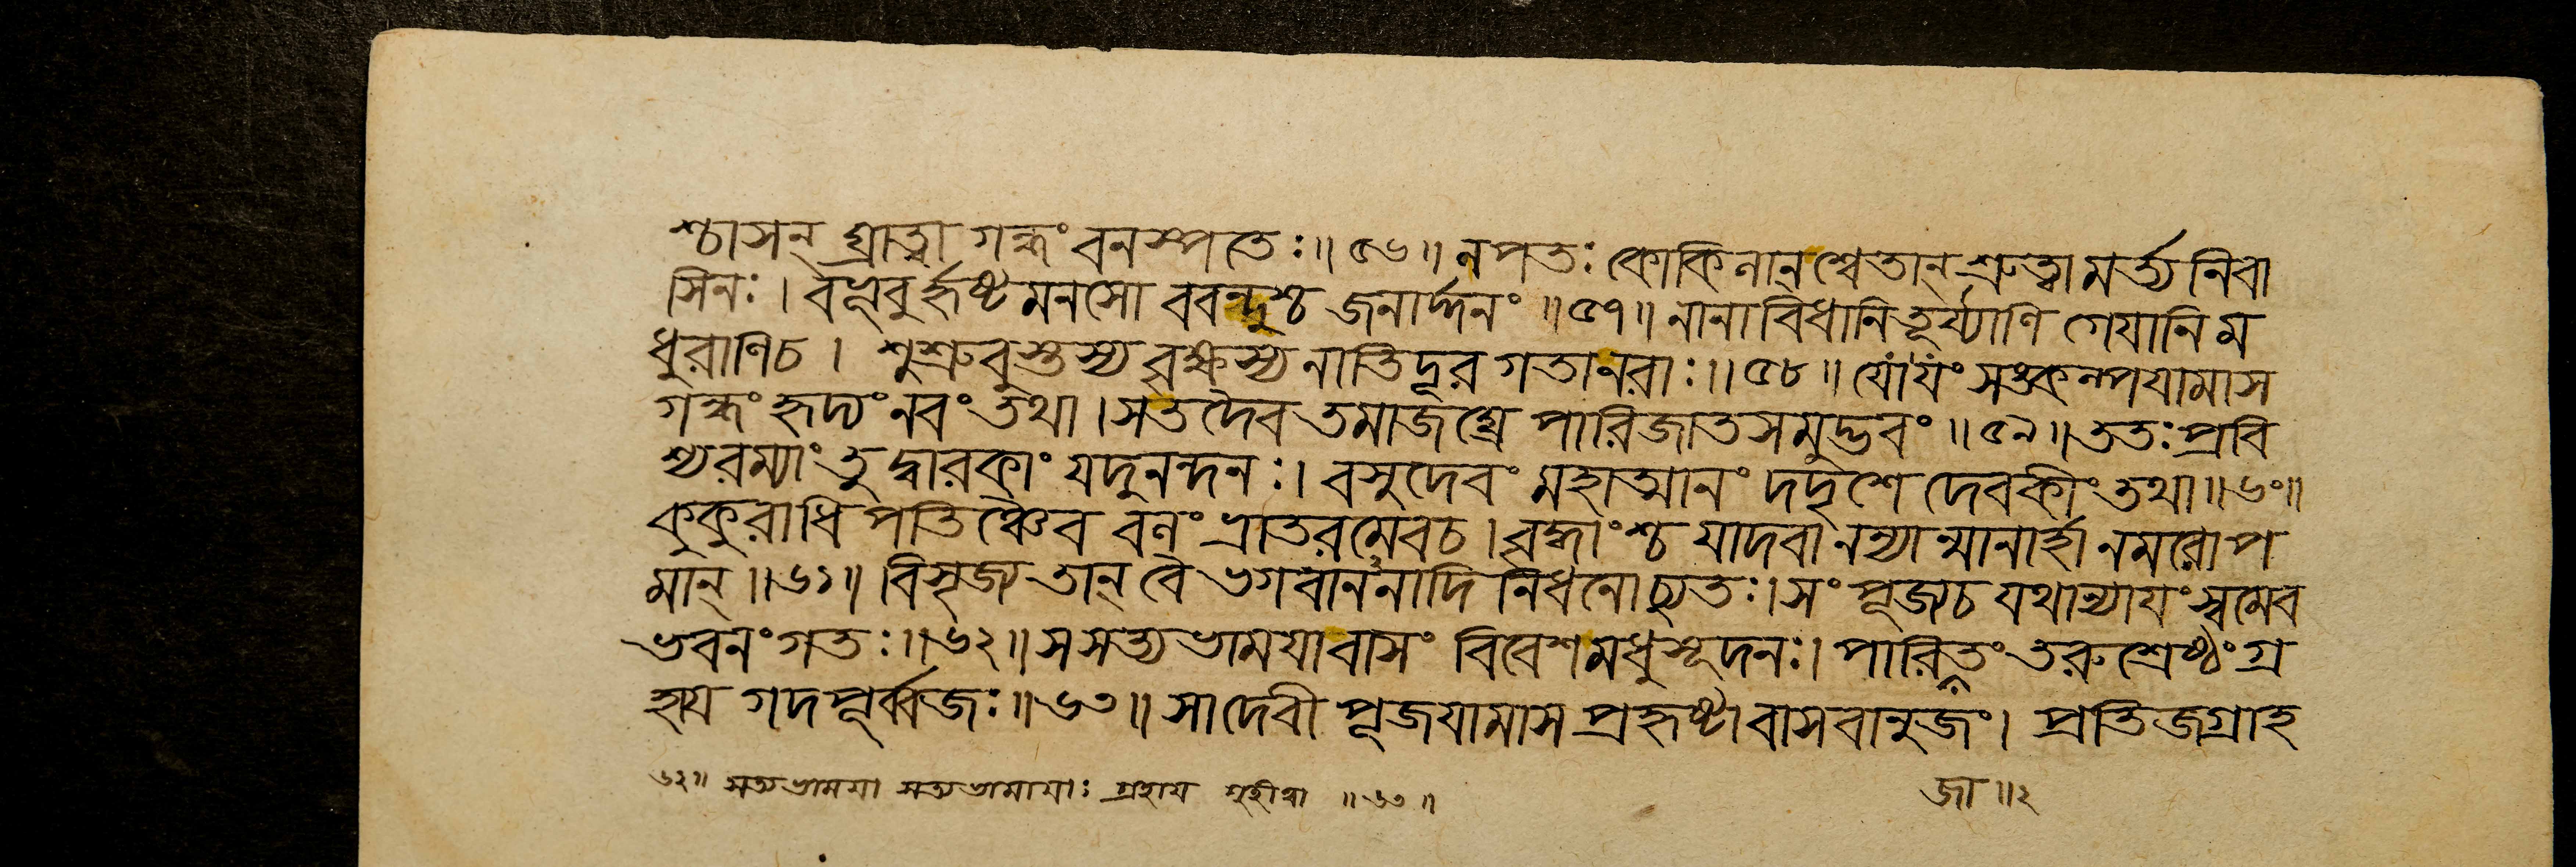 শ্চাসন্ ঘ্রাত্বা গন্ধং বনস্পতেঃ॥৫৬॥ নপতঃ কোকিলান্শ্বেতান্ শ্রুত্বামর্ত্ত্যনিবা
সিনঃ। বভূবুর্হৃষ্টমনসো ববন্দুশ্চ জনার্দ্দনং ॥৫৭॥ নানাবিধানিতূর্য্যাণি গেযানিম
ধুরাণিচ। শুশ্রুবুস্তস্য বৃক্ষস্য নাতিদূর গতানরাঃ॥৫৮॥ যোযং সঙ্কল্পযামাস
গন্ধং হৃদ্যং নবং তথা। সতদৈব তমাজঘ্রে পারিজাতসমুদ্ভবং ॥৫৯॥ ততঃ প্রবি
শ্যরম্যাং তু দ্বারকাং যদুনন্দনঃ। বসুদেবং মহাত্মানং দদৃশে দেবকীং তথা॥৬০॥
কুকুরাধিপতিঞ্চৈব বলং ভ্রাতরমেবচ। বৃদ্ধাংশ্চ যাদবানন্যান্মানার্হানমরোপ
মান্॥৬১॥ বিসৃজ্য তান্ বৈ ভগবাননাদি নিধনোচ্যুতঃ। সংপূজ্যচ যথান্যাযং স্বমেব
ভবনং গতঃ॥৬২॥ সসত্যভামযাবাসং বিবেশমধুসূদনঃ। পারিতং তরুশ্রেষ্ঠং গ্র
হায গদপূর্ব্বজঃ॥৬৩॥ সাদেবী পূজযামাস প্রহৃষ্টাবাসবানুজং। প্রতিজগ্রাহ
৬২॥ সত্যভামযা সত্যভামাযাঃ গ্রহায গৃহীত্বা ॥৬৩॥
জা॥২